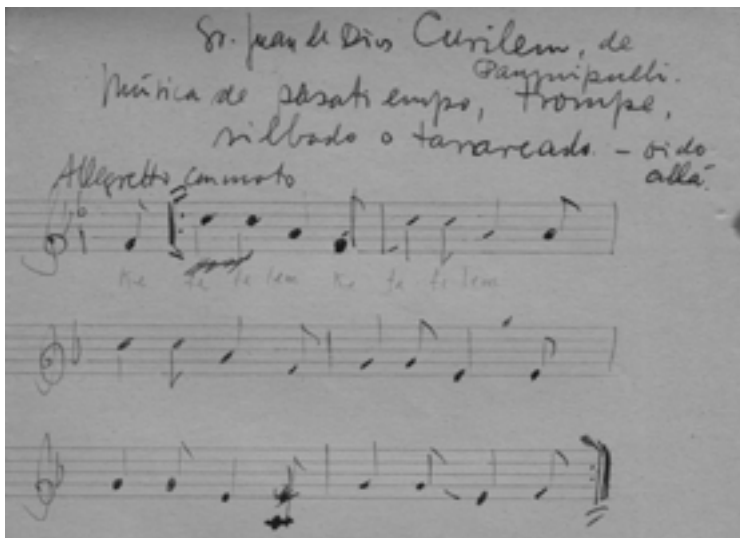 Sr. Juan de Dios Curilem, de
Panguipulli.
Música de pasatiempo, trompe,
silbado o tarareado – oido
allá.
Allegretto con moto
ke te te lem ke te te lem